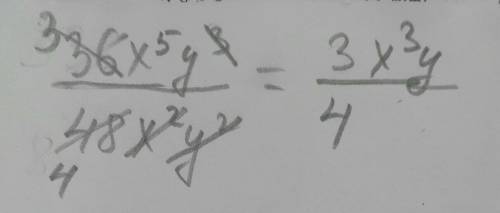 3 36x⁵y³ / 4 48x²y² = 3x³y / 4